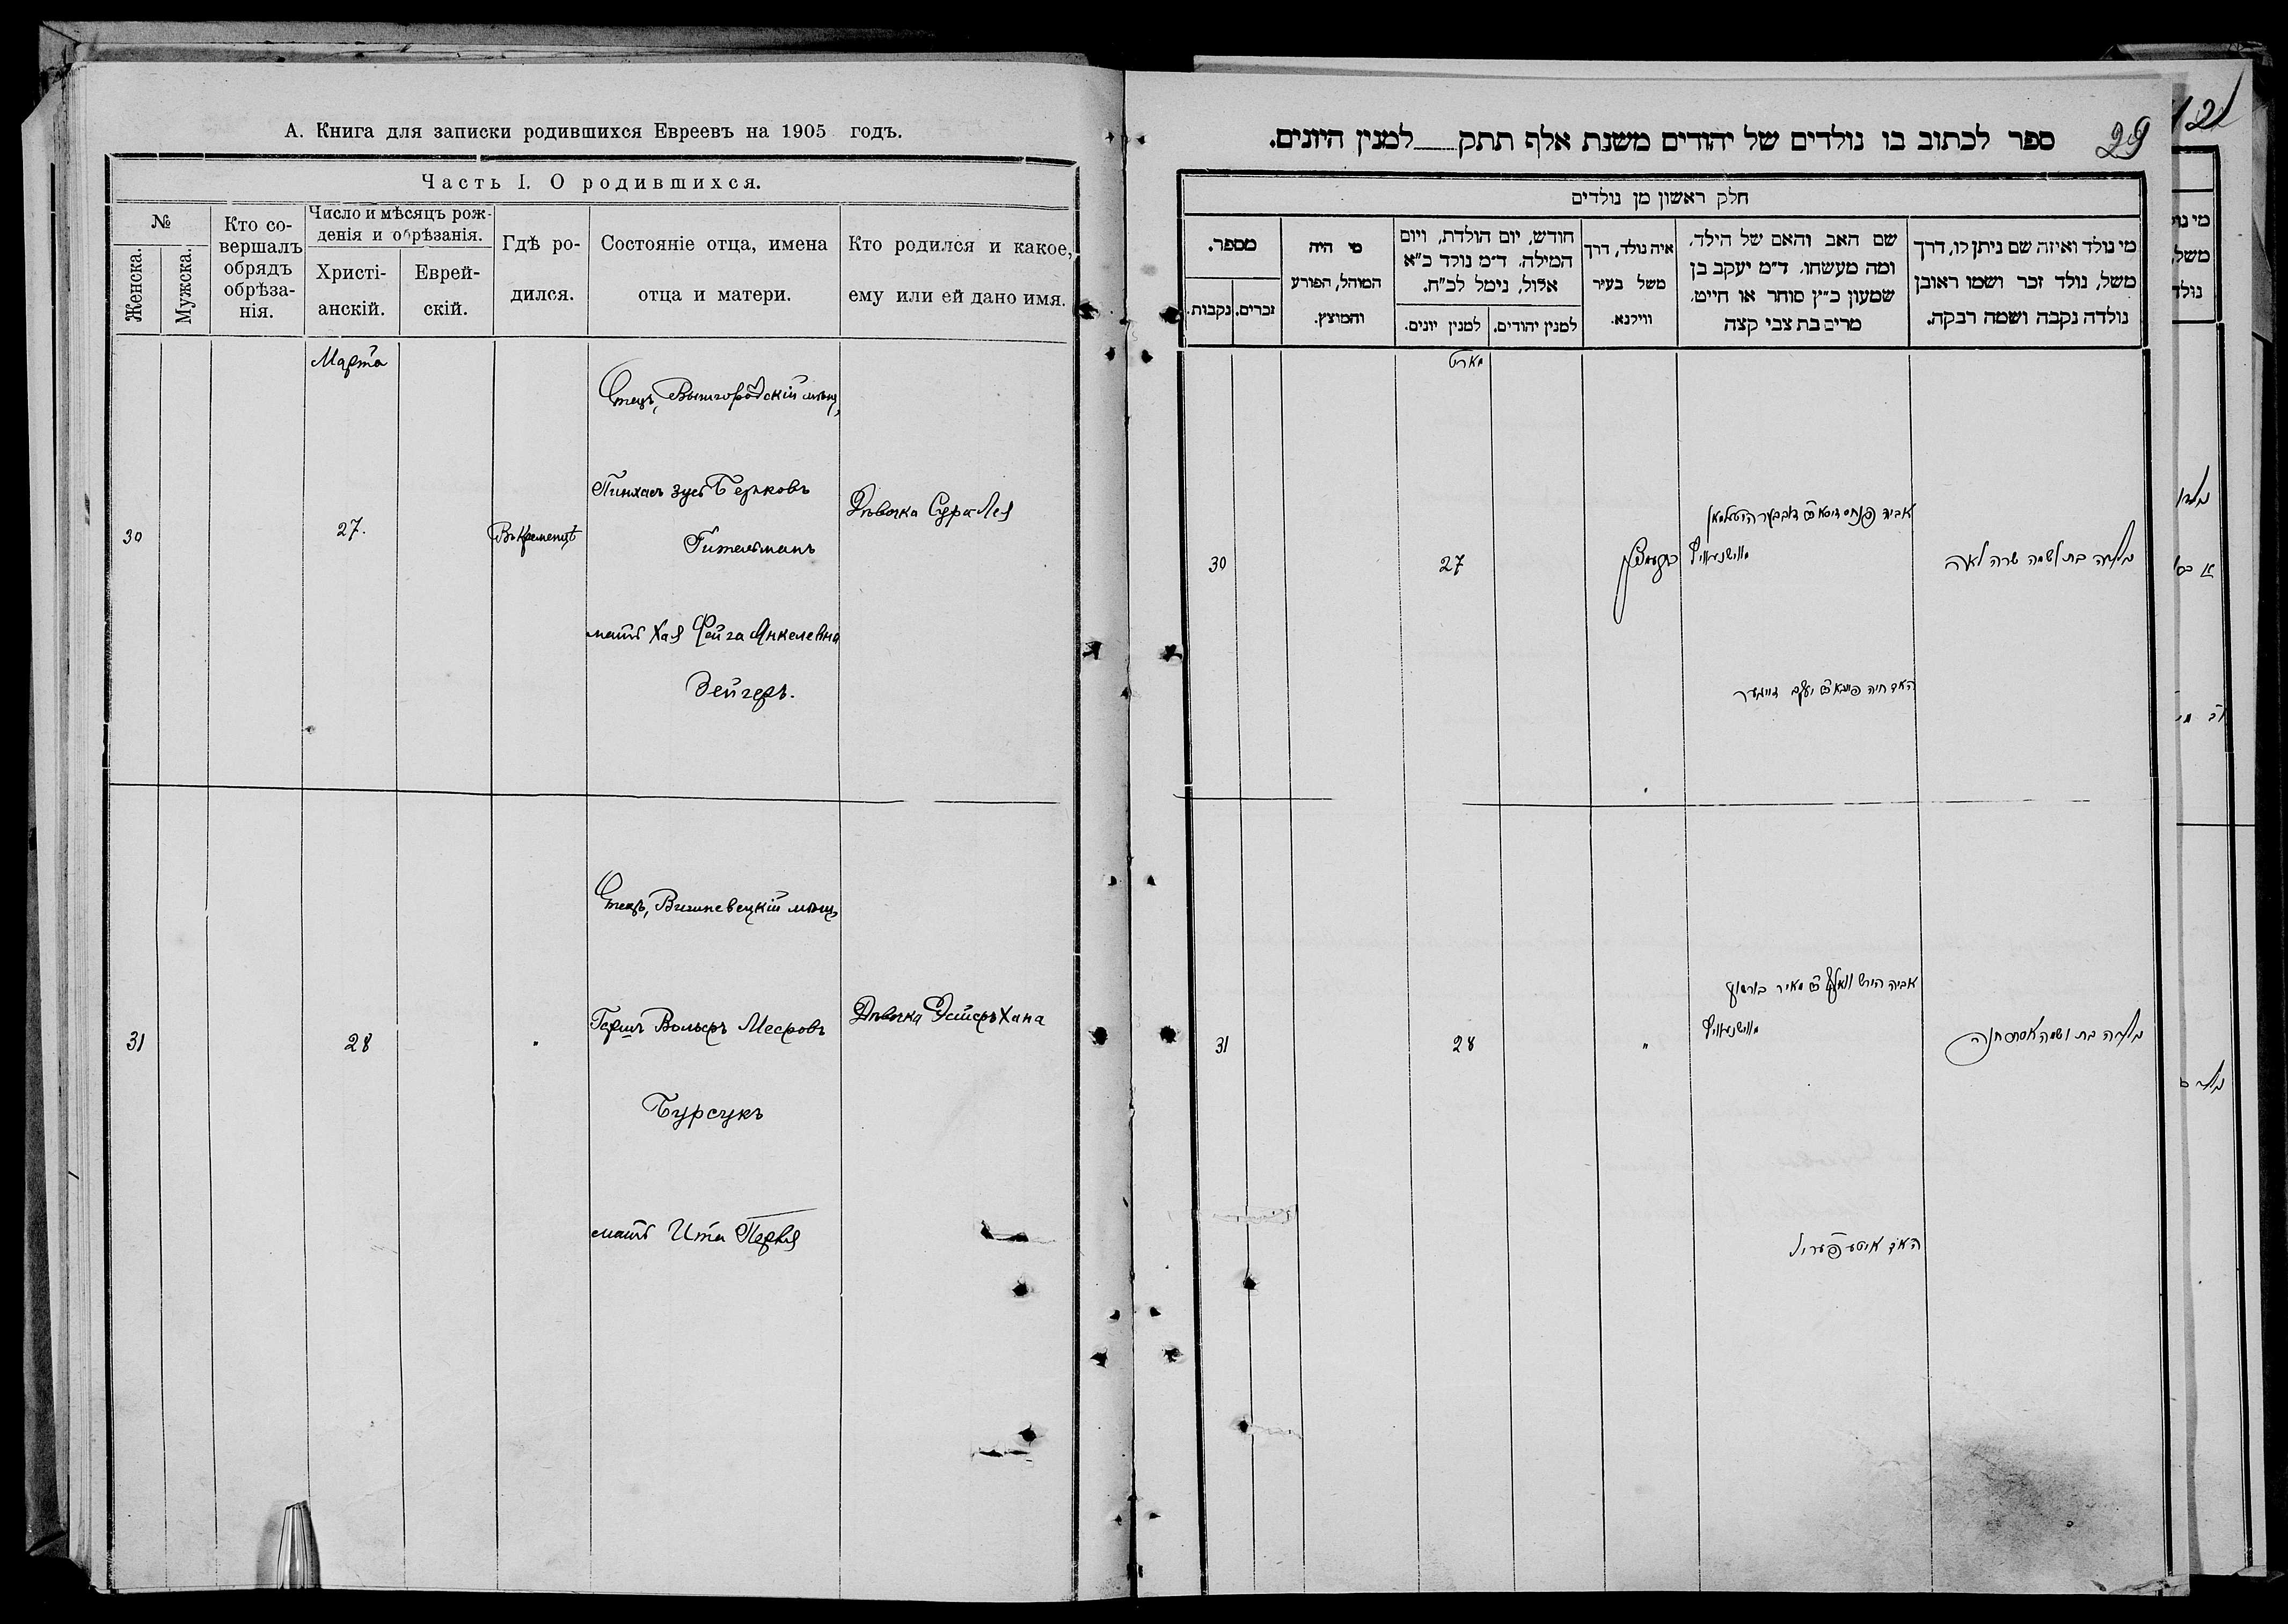 А. Книга для записки родившихся Евреевъ на 1905 годъ.
Часть I. О родившихся.
№
Женска.
Мужска.
Кто со-
вершалъ
обрядъ
обрѣза-
нія.
Число и мѣсяцъ рож-
денія и обрѣзанія.
Христі-
анскій.
Еврей-
скій.
Гдѣ ро-
дился.
Состояніе отца, имена
отца и матери.
Кто родился и какое,
ему или ей дано имя.
Марта
30
27.
Въ Кременцѣ
Отецъ, Вышгородскій мѣщ,
Пинхасъ Зусь Берковъ
Гительманъ
мать Хая Фейга Янкелевна
Зейгеръ.
Дѣвочка Сура Лея
31
28
"
Отецъ, Вишневецкій мѣщ
Гершъ Вольфъ Мееровъ
Бурсукъ
мать Ита Перля
Дѣвочка Эстеръ Хана
29
ספר לכתוב בו נולדים של יהודים משנת אלף תתק___למנין היונים.
חלק ראשון מן נולדים
מי נולד ואיזה שם ניתן לו, דרך
משל, נולד זכר ושמו ראובן
נולדה נקבה ושמה רבקה.
שם האב והאם של הילד,
ומה מעשהו. ד״מ יעקב בן
שמעון כ״ץ סוחר או חייט.
מרים בת צבי קצה
איה נולד, דרך
משל בעיר
ווילנא.
חודש, יום הולדת, ויום
המילה. ד״מ נולד כ״א
אלול, נימל לכ״ח.
למנין יהודים.
למנין יונים.
מי היה
המוהל, הפורע
והמוצץ.
מספר.
זכרים.
נקבות.
מארט
30
27
אביה פנחס
האם חיה פייגא יעקב זייגער
נולדה בת ושמה שרה לאה
31
28
"
אביה הירש וואלף מאיר בורסוק
האם איטע פערל
נולדה בת ושמה אסתר חנה
121